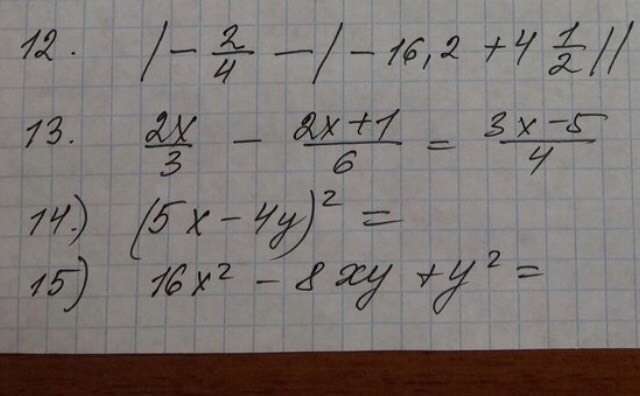 12. |-2/4 - |-16,2 + 4 1/2||
13. 2x/3 - 2x+1/6 = 3x-5/4
14.) (5x-4y)² =
15) 16x² - 8xy + y² =